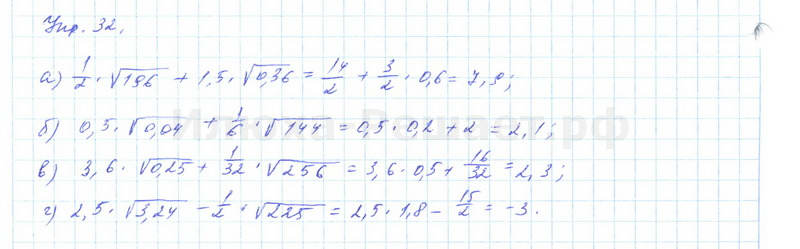 Упр. 32.
а) 1/2 · √196 + 1,5 · √0,36 = 14/2 + 3/2 · 0,6 = 7,9;
б) 0,5 · √0,04 + 1/6 · √144 = 0,5 · 0,2 + 2 = 2,1;
в) 3,6 · √0,25 + 1/32 · √256 = 3,6 · 0,5 + 16/32 = 2,3;
г) 2,5 · √3,24 - 1/2 · √225 = 2,5 · 1,8 - 15/2 = -3.